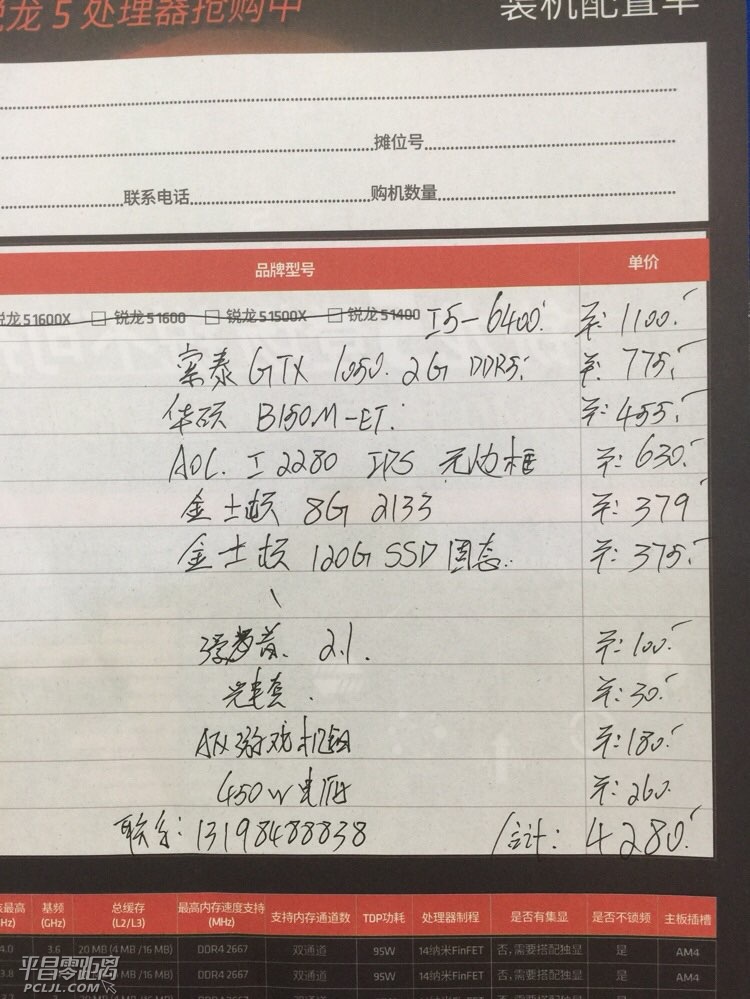 锐龙 5 处理器抢购中 装机配置单
摊位号
联系电话 购机数量
品牌型号 单价
锐龙51600X 锐龙51600 锐龙51500X 锐龙51400 I5-6400. 羊: 1100.
索泰 GTX 1050. 2G DDR5. 羊: 775.
华硕 B150M-ET. 羊: 455.
AOC. I2280 IPS 无边框 羊: 630.
金士顿 8G 2133 羊: 379
金士顿 120G SSD 固态. 羊: 375.
2.1. 羊: 100.
光电套. 羊: 30.
ATX 游戏机箱 羊: 180.
450W 电源 羊: 260.
联系: 13198488838 合计: 4280.
最高 基频 总缓存 最高内存速度支持 支持内存通道数 TDP功耗 处理器制程 是否有集显 是否不锁频 主板插槽
Hz) (GHz) (L2/L3) (MHz)
4.0 3.6 20 MB (4 MB /16 MB) DDR4 2667 双通道 95W 14纳米FinFET 否,需要搭配独显 是 AM4
3.8 /16 MB) DDR4 2667 双通道 95W 14纳米FinFET 否,需要搭配独显 是 AM4
平昌零距离
PCLJL.COM